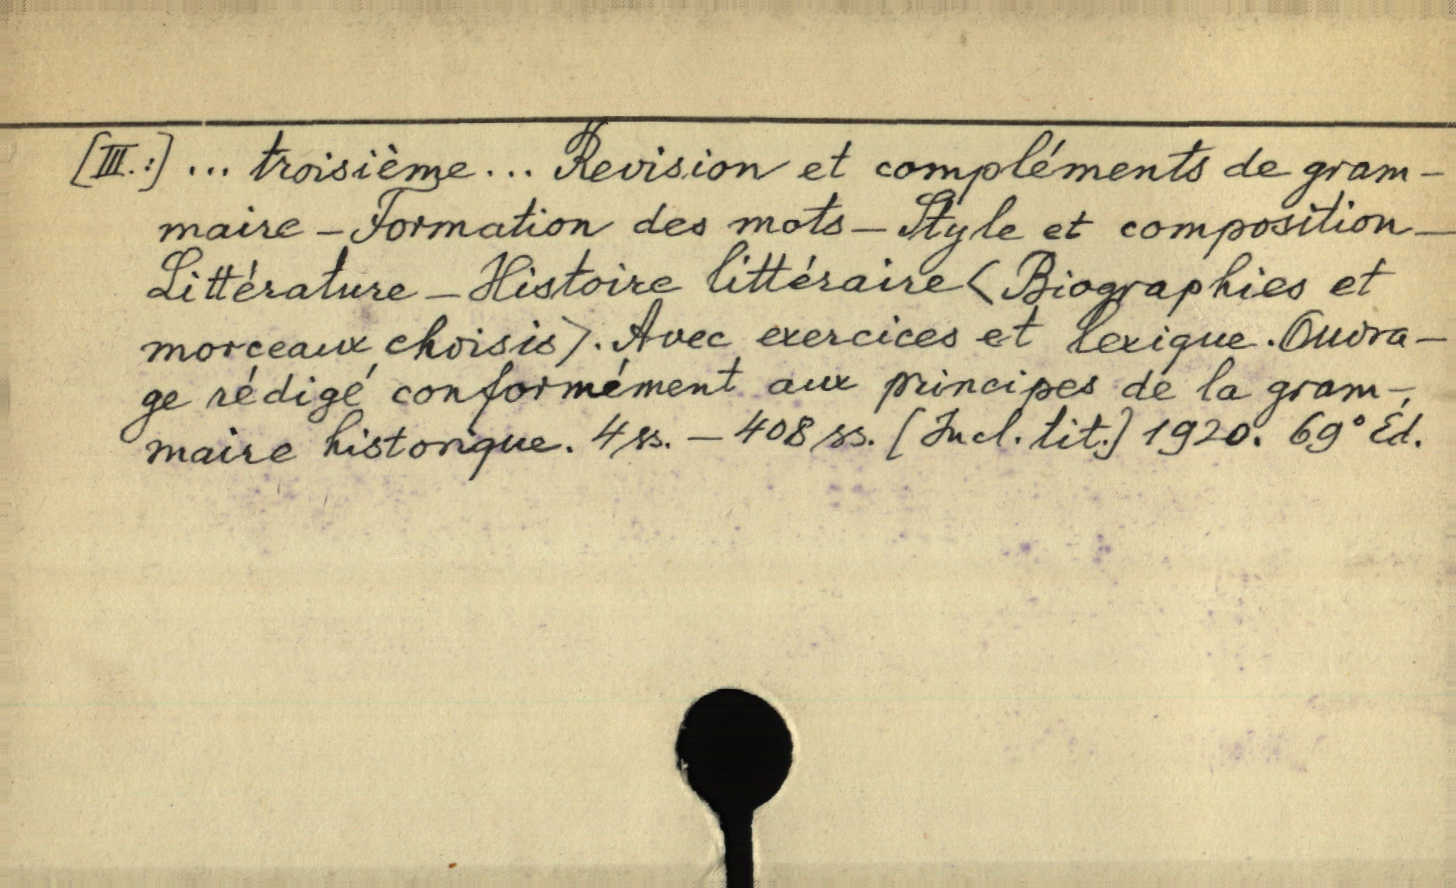 [III.:] ... troisième... Revision et compléments de gram-
maire - Formation des mots - Style et composition -
Littérature - Histoire littéraire <Biographies et
morceaux choisis>. Avec exercices et lexique. Ouvra-
ge rédigé conformément aux principes de la gram-
maire historique. 4 ss. - 408 ss. [Incl. tit.] 1920. 69° Éd.